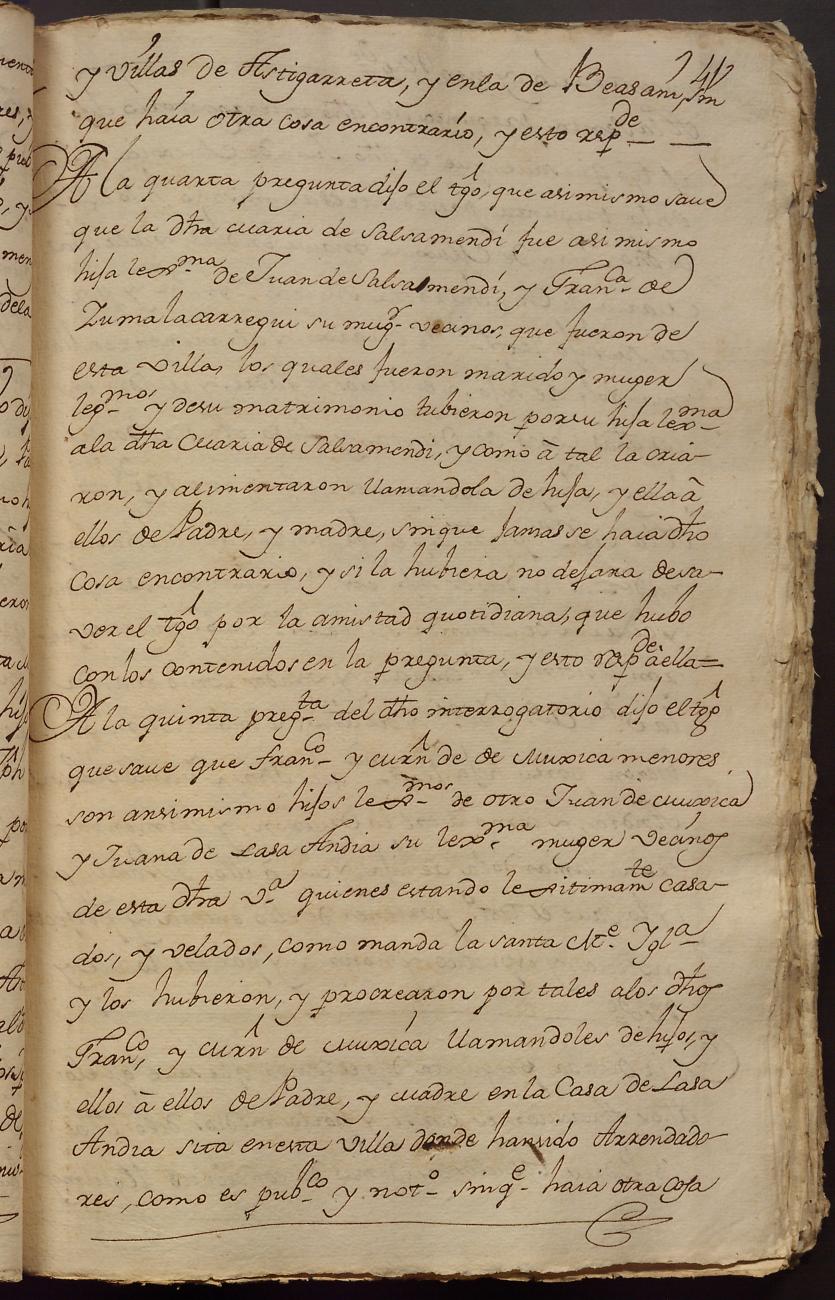 y villas de Astigarreta, y enla de Beasain, sin
que haia otra cosa encontrario, y esto respde
A la quarta pregunta dijo el tgo, que asimismo save
que la dha Maria de Salsamendi fue asimismo
hija lexma de Juan de Salsamendi, y Franca de
Zumalacarregui su mugr vecinos, que fueron de
esta villa, los quales fueron marido y muger
legmos y desu matrimonio tubieron porsu hija lexma
ala dha Maria de Salsamendi, y como â tal la cria-
ron, y alimentaron llamandola de hija, y ella â
ellos de Padre, y madre, sinque jamas se haia dho
cosa encontrario, y si la hubiera no dejara desa-
ver el tgo por la amistad quotidiana, que hubo
con los contenidos en la pregunta, y esto respde aella=
A la quinta pregta del dho interrogatorio dijo el tgo
que save que Franco y Mrn de de Muxica menores
son ansimismo hijos lexmos de otro Juan de Muxica
y Juana de Lasa Andia su lexma muger vecinos
de esta dha va quienes estando lexitimamte casa-
dos, y velados, como manda la santa Me Ygla
y los hubieron, y procrearon por tales alos dhos
Franco, y Mrn de Muxica llamandoles de hijos, y
ellos â ellos de Padre, y Madre en la Casa de Lasa
Andia sita en esta villa donde hansido Arrendado-
res, como es pubco y noto sinqe haia otra cosa